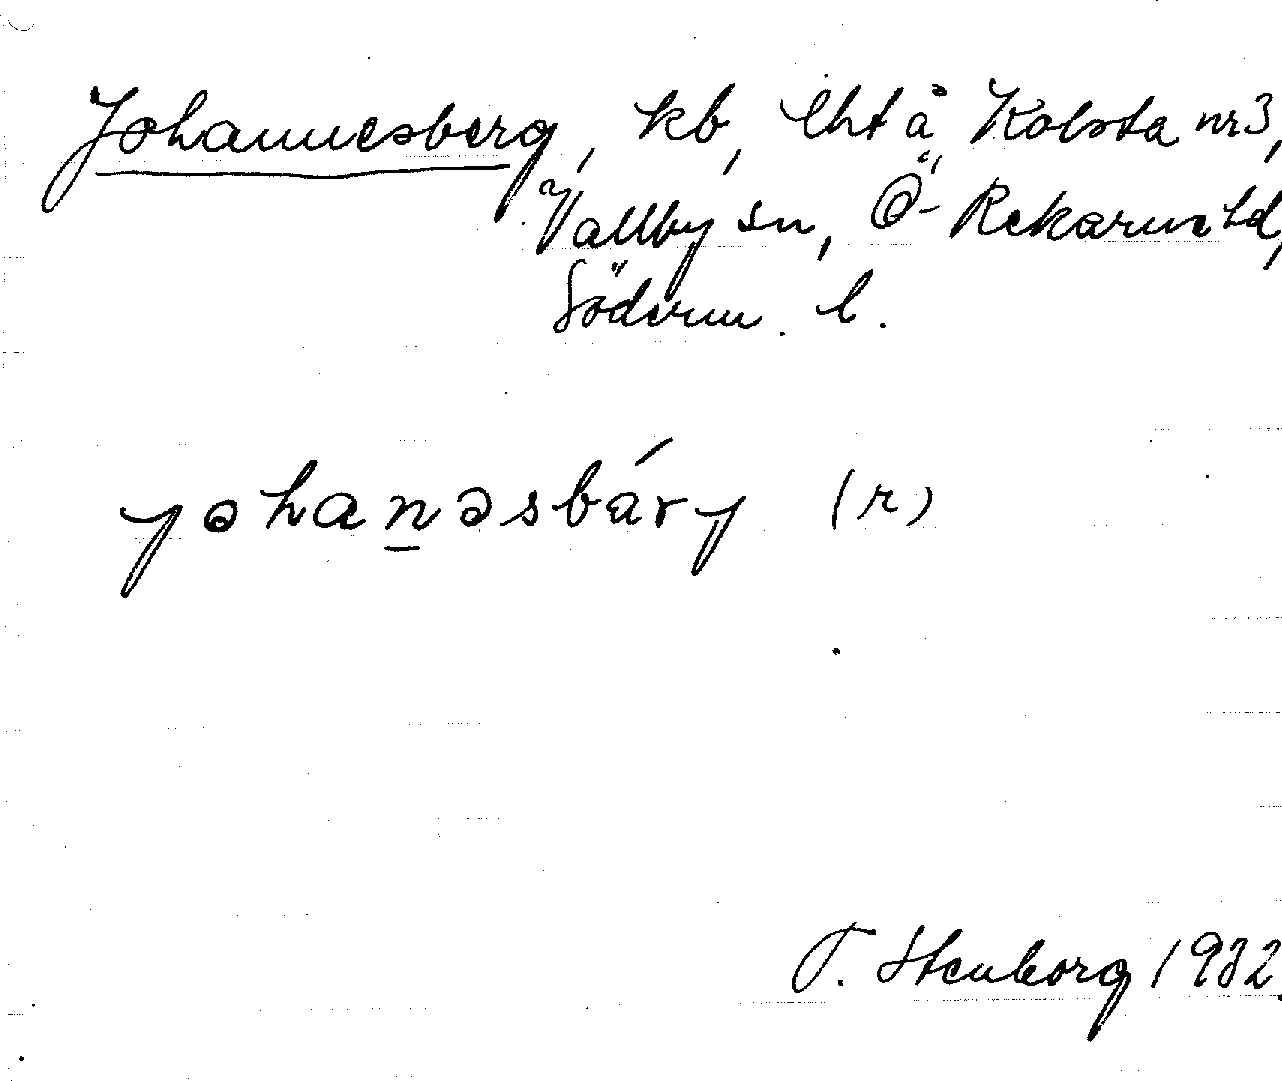 Johannesberg, kb, lht å Kolsta nr 3,
Vallby sn, Ö-Rekarne hd,
Söderm. l.
johan̲əsbárj (r)
T. Stenborg 1932.